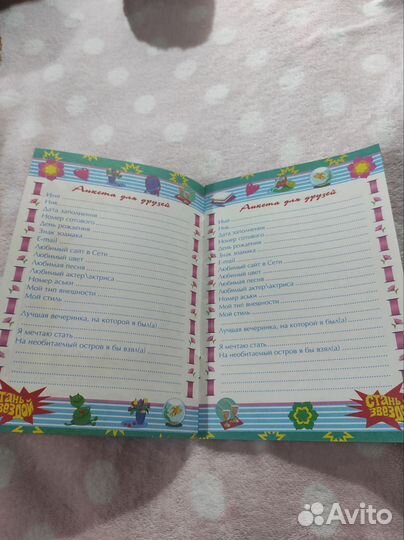 Анкета для друзей
Имя
Ник
Дата заполнения
Номер сотового
День рождения
Знак зодиака
E-mail
Любимый сайт в Сети
Любимый цвет
Любимая песня
Любимый актер\актриса
Номер аськи
Мой тип внешности
Мой стиль
Лучшая вечеринка, на которой я был(а)
Я мечтаю стать
На необитаемый остров я бы взял(а)
Стань звездой
Анкета для друзей
Имя
Ник
Дата заполнения
Номер сотового
День рождения
Знак зодиака
E-mail
Любимый сайт в Сети
Любимый цвет
Любимая песня
Любимый актер\актриса
Номер аськи
Мой тип внешности
Мой стиль
Лучшая вечеринка, на которой я был(а)
Я мечтаю стать
На необитаемый остров я бы взял(а)
Стань
звездой
Avito